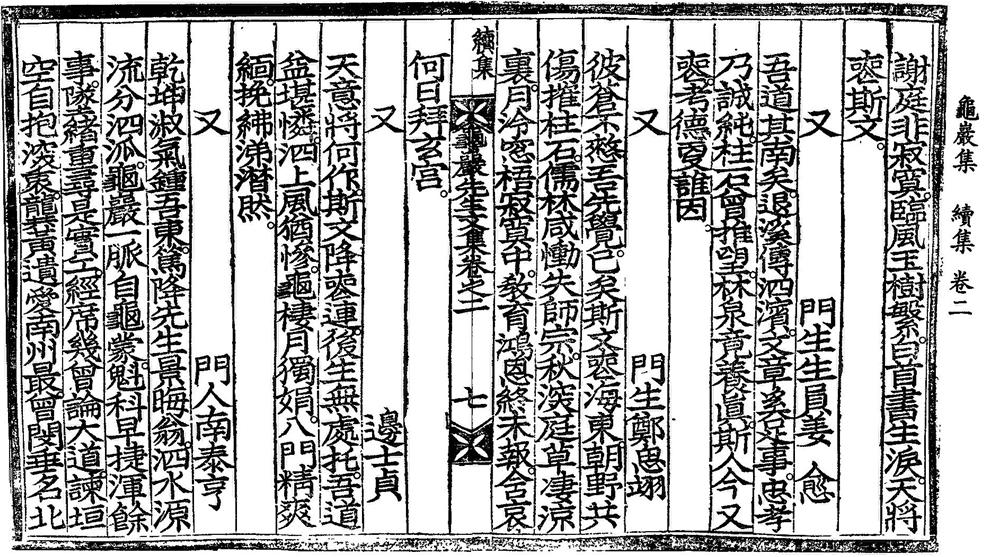 龜巖集 續集 卷二
謝庭非寂寞。臨風玉樹繁。白首書生淚。天將
喪斯文。
又 門生生員姜 愈
吾道其南矣。退溪傳泗濱。文章奚足事。忠孝
乃誠純。柱石曾推望。林泉竟養眞。斯人今又
喪。考德更誰因。
又 門生鄭思翊
彼蒼不憗吾先覺。已矣斯文喪海東。朝野共
傷摧柱石。儒林咸慟失師宗。秋深庭草凄涼
裏。月冷窓梧寂寞中。敎育鴻恩終未報。含哀
續集 龜巖先生文集卷之二 七
何日拜玄宮。
又 邊士貞
天意將何作。斯文降喪連。後生無處托。吾道
益堪憐。泗上風猶慘。龜棲月獨娟。八門精爽
緬。挽紼涕潸然。
又 門人南泰亨
乾坤淑氣鍾吾東。篤降先生景晦翁。泗水源
流分泗派。龜巖一脈自龜蒙。魁科早捷渾餘
事。墜緖重尋是實工。經席幾曾論大道。諫垣
空自抱深衷。龔黃遺愛南州最。曾閔垂名北